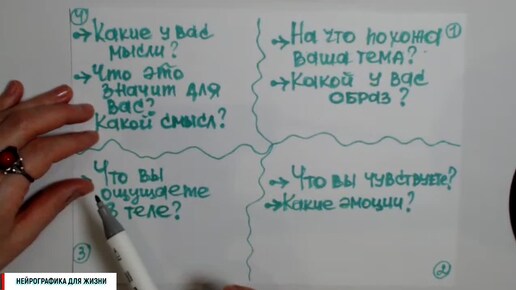 ④
→ Какие у вас
мысли?
→ Что это
значит для
вас?
Какой смысл?
→ На что похожа
ваша тема?
①
→ Какой у вас
образ?
Что вы
ощущаете
в теле?
③
→ Что вы чувствуете?
→ Какие эмоции?
②
НЕЙРОГРАФИКА ДЛЯ ЖИЗНИ